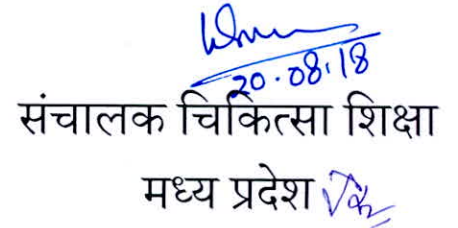 20.08.18
संचालक चिकित्सा शिक्षा
मध्य प्रदेश